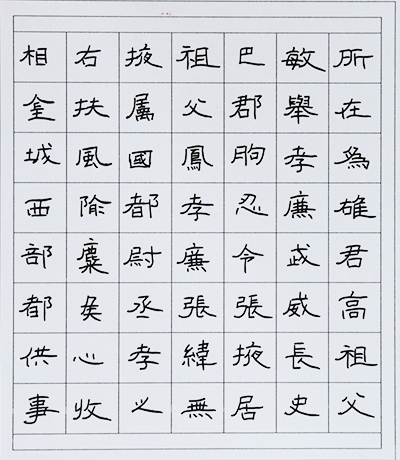 所在為雄君高祖父
敏舉孝廉武威長史
巴郡朐忍令張掖居
祖父鳳孝廉張緯無
掖属國都尉丞孝之
右扶風隃麋侯心收
相金城西部都供事